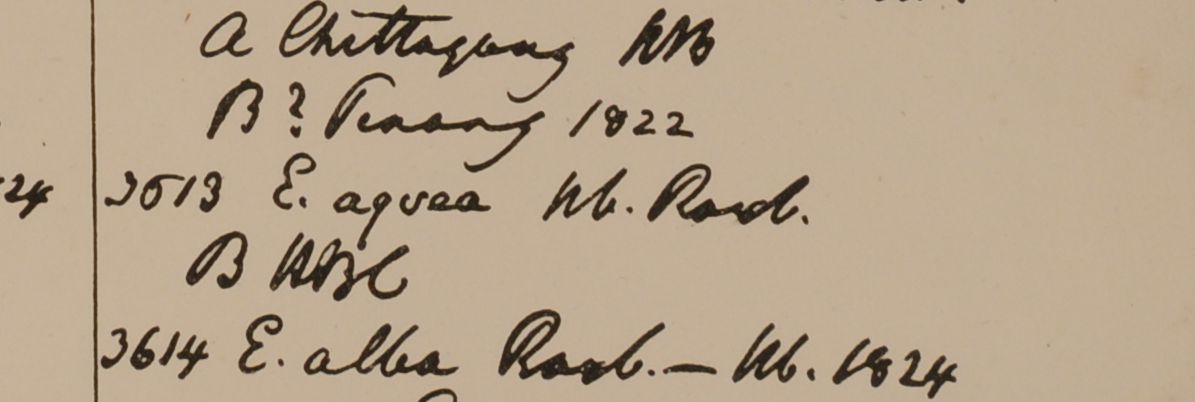 a Chittagong HB
B? Penang 1822
24 3613 E. aquea Hb. Roxb.
B HBC
3614 E. alba Roxb. — Hb. 1824